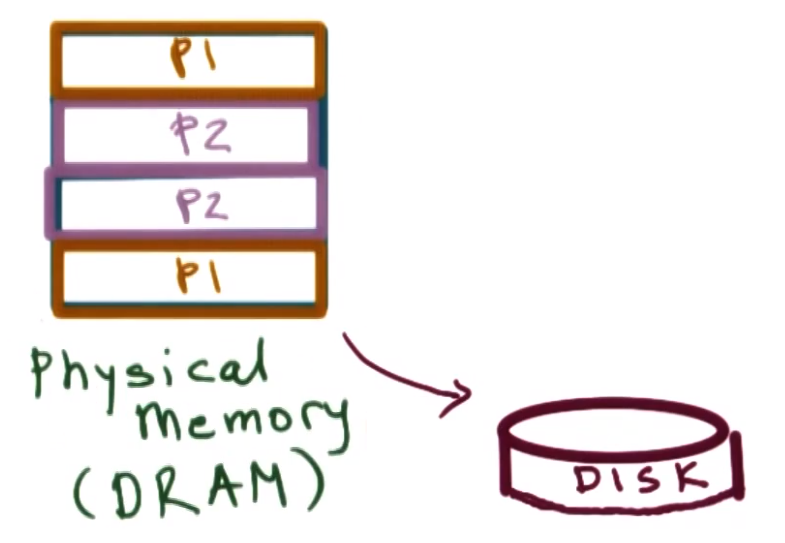 P1
P2
P2
P1
Physical
Memory
(DRAM)
DISK